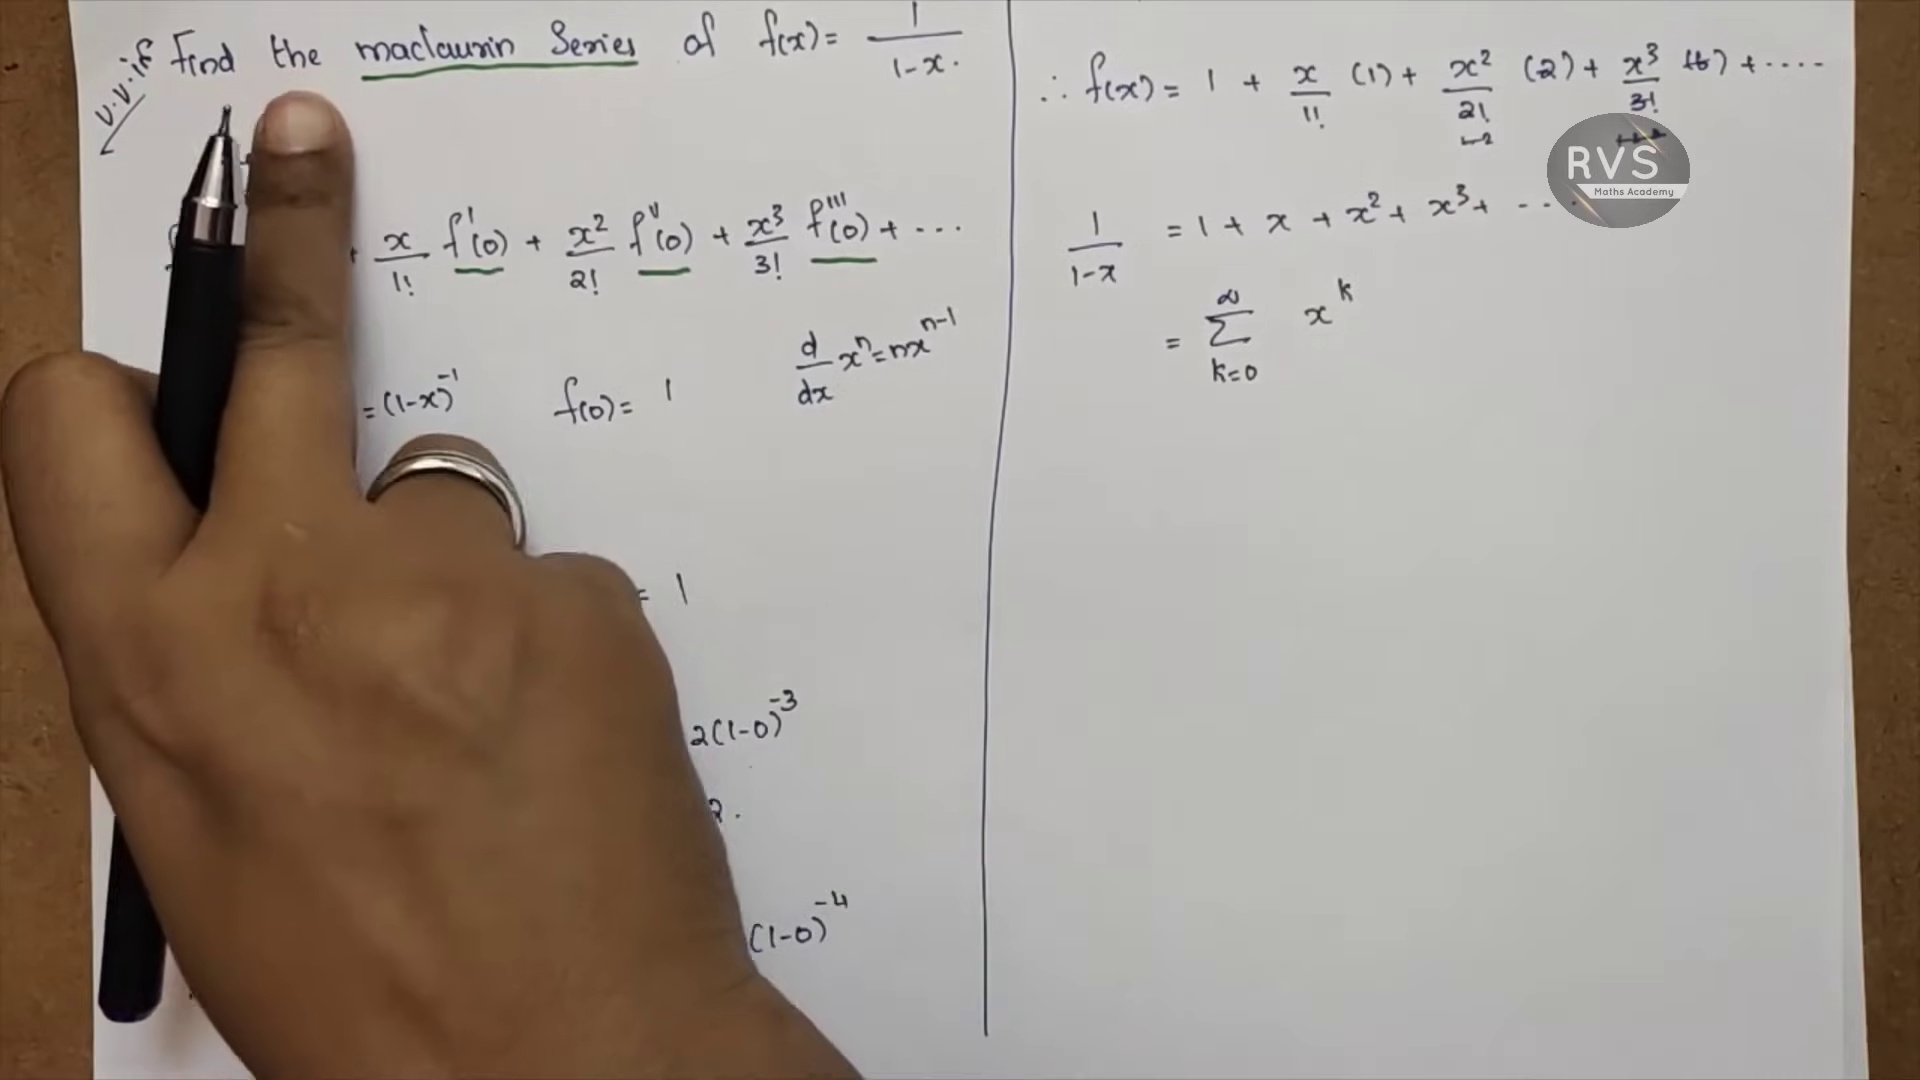 v.v.if Find the maclaurin Series of f(x) = 1/(1-x).
+ x/1! f'(0) + x²/2! f''(0) + x³/3! f'''(0) + ...
= (1-x)⁻¹ f(0) = 1 d/dx xⁿ = nxⁿ⁻¹
= 1
2(1-0)⁻³
2.
(1-0)⁻⁴
∴ f(x) = 1 + x/1! (1) + x²/2! (2) + x³/3! (6) + ....
1/(1-x) = 1 + x + x² + x³ + ....
= ∞ Σ k=0 xᵏ
RVS
Maths Academy